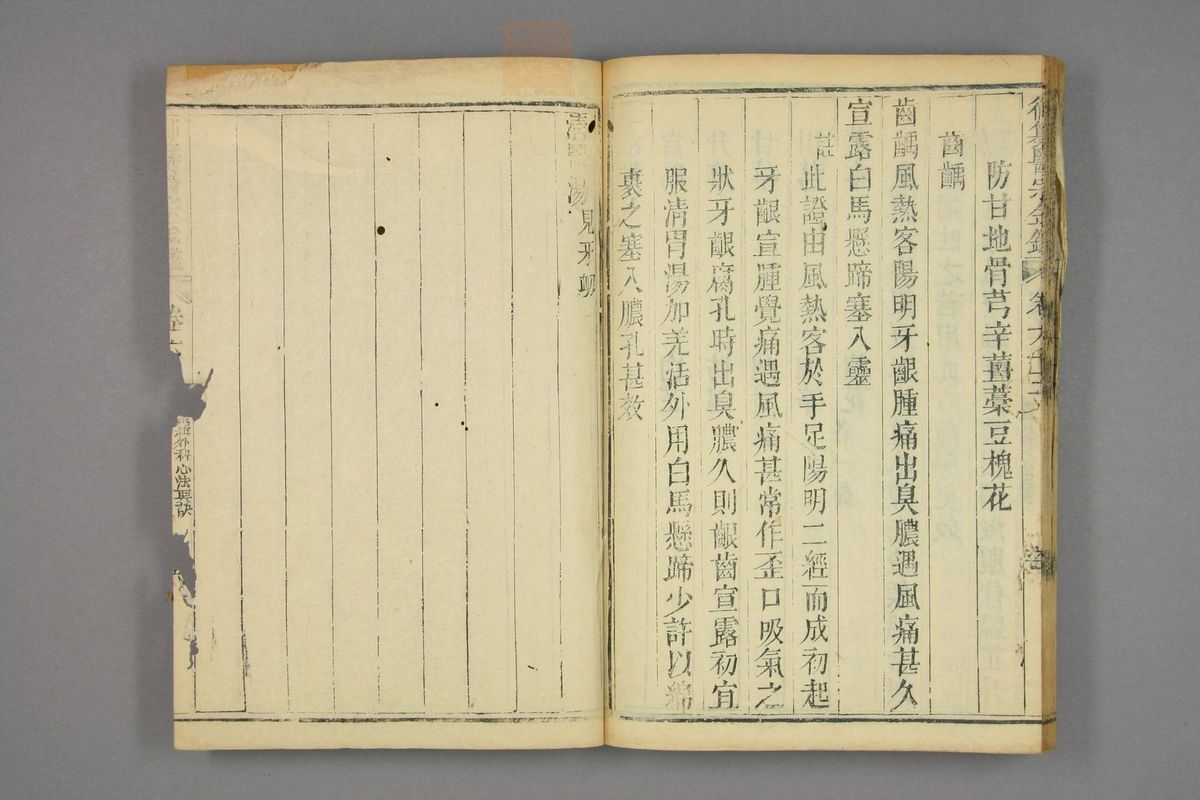 防甘地骨芎辛薑藁豆槐花
齒齲
齒齲風熱客陽明牙齦腫痛出臭膿遇風痛甚久
宣露白馬懸蹄塞入靈
註此證由風熱客於手足陽明二經而成初起
牙齦宣腫覺痛遇風痛甚常作歪口吸氣之
狀牙齦腐孔時出臭膿久則齦齒宣露初宜
服清胃湯加羌活外用白馬懸蹄少許以綿
裹之塞入膿孔甚效
清胃湯見牙衄
卷六
外科心法要訣